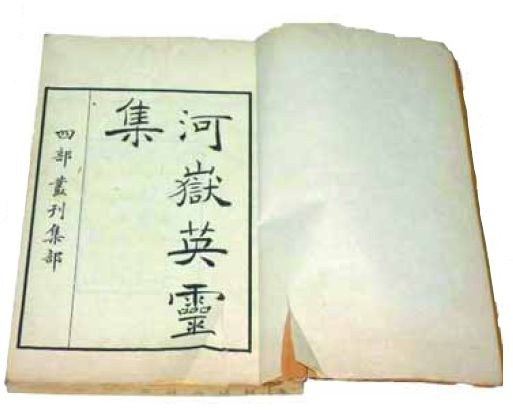 河嶽英靈
集
四部叢刊集部